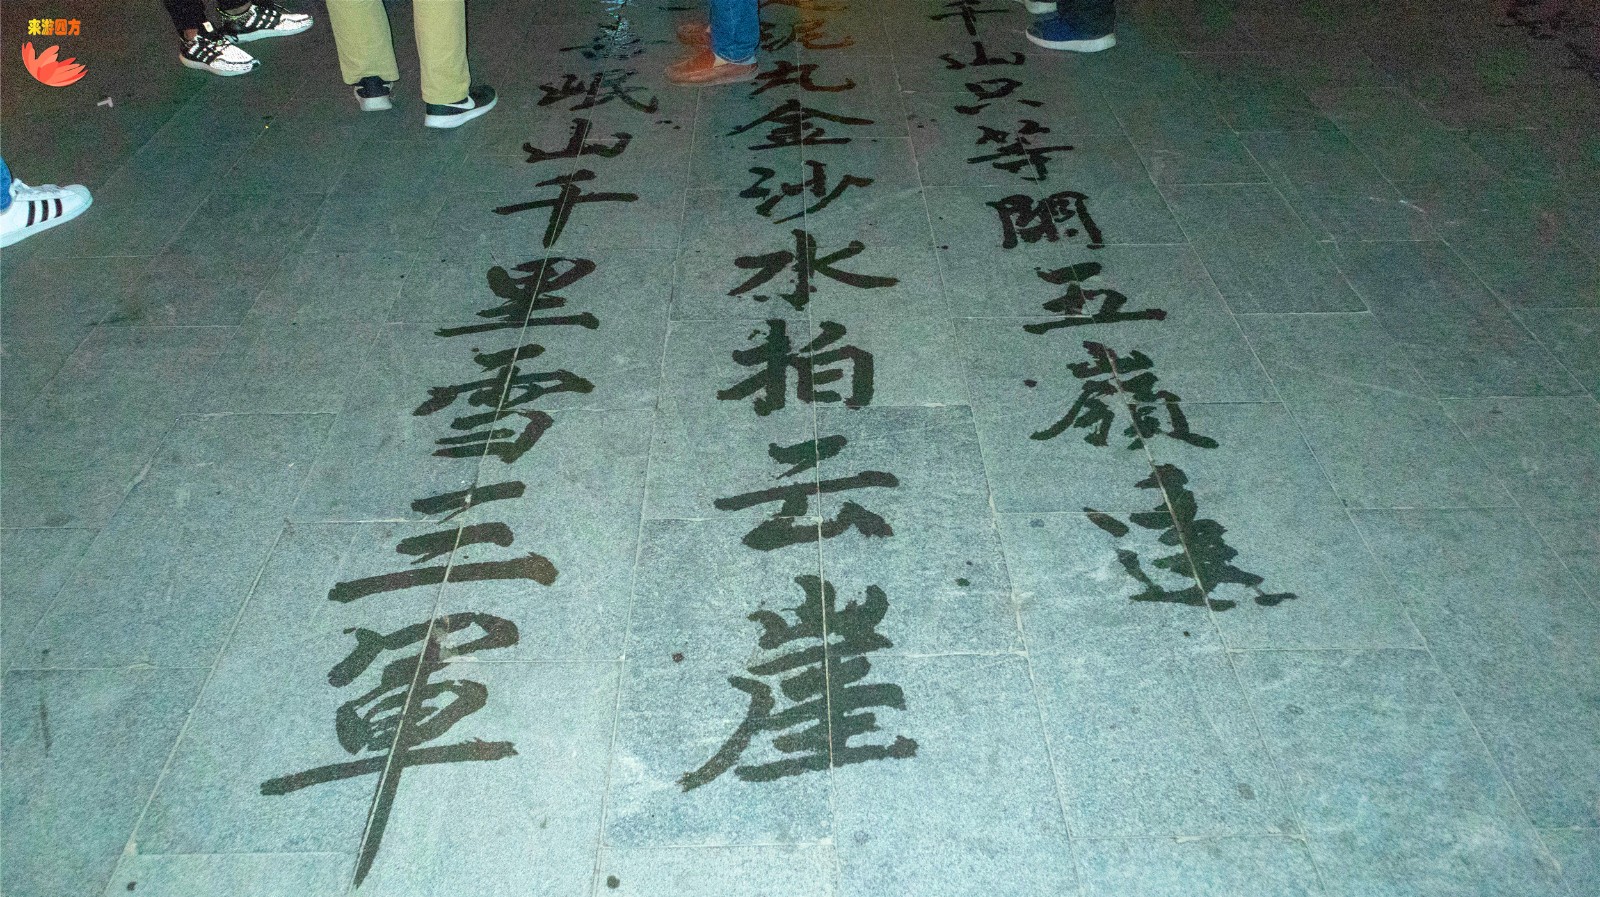 来游四方
千山只等閑五嶺逶
泥丸金沙水拍云崖
岷山千里雪三軍